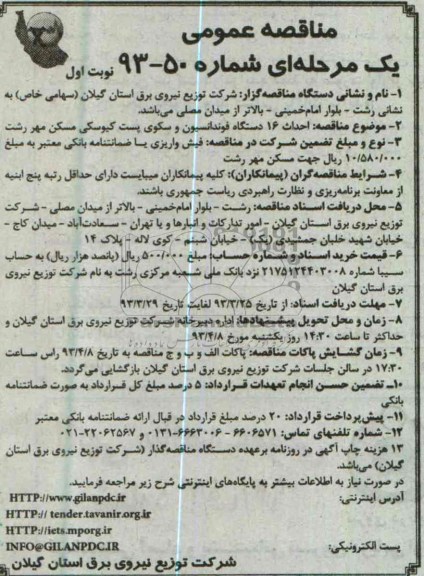 مناقصه عمومی
یک مرحله‌ای شماره ۵۰-۹۳ نوبت اول
۱- نام و نشانی دستگاه مناقصه‌گزار: شرکت توزیع نیروی برق استان گیلان (سهامی خاص) به
نشانی رشت - بلوار امام‌خمینی - بالاتر از میدان مصلی می‌باشد.
۲- موضوع مناقصه: احداث ۱۶ دستگاه فونداسیون و سکوی پست کیوسکی مسکن مهر رشت
۳- نوع و مبلغ تضمین شرکت در مناقصه: فیش واریزی یا ضمانتنامه بانکی معتبر به مبلغ
۱۰/۵۸۰/۰۰۰ ریال جهت مسکن مهر رشت
۴- شرایط مناقصه‌گران (پیمانکاران): کلیه پیمانکاران میبایست دارای حداقل رتبه پنج ابنیه
از معاونت برنامه‌ریزی و نظارت راهبردی ریاست جمهوری باشند.
۵- محل دریافت اسناد مناقصه: رشت - بلوار امام‌خمینی - بالاتر از میدان مصلی - شرکت
توزیع نیروی برق استان گیلان - امور تدارکات و انبارها و یا تهران - سعادت‌آباد - میدان کاج -
خیابان شهید خلبان جمشیدی (یکم) - خیابان شبنم - کوی لاله - پلاک ۱۴
۶- قیمت خرید اسناد و شماره حساب: مبلغ ۵۰۰/۰۰۰ ریال (پانصد هزار ریال) به حساب
سیبا شماره ۲۱۷۵۱۲۴۴۰۳۰۰۸ نزد بانک ملی شعبه مرکزی رشت به نام شرکت توزیع نیروی
برق استان گیلان
۷- مهلت دریافت اسناد: از تاریخ ۹۳/۳/۲۵ لغایت تاریخ ۹۳/۳/۲۹
۸- زمان و محل تحویل پیشنهادها: اداره دبیرخانه شرکت توزیع نیروی برق استان گیلان و
حداکثر تا ساعت ۱۴:۳۰ روز یکشنبه مورخ ۹۳/۴/۸
۹- زمان گشایش پاکات مناقصه: پاکات الف و ب و ج مناقصه به تاریخ ۹۳/۴/۸ راس ساعت
۱۷:۳۰ در سالن جلسات شرکت توزیع نیروی برق استان گیلان بازگشایی می‌گردد.
۱۰- تضمین حسن انجام تعهدات قرارداد: ۵ درصد مبلغ کل قرارداد به صورت ضمانتنامه
بانکی
۱۱- پیش‌پرداخت قرارداد: ۲۰ درصد مبلغ قرارداد در قبال ارائه ضمانتنامه بانکی معتبر
۱۲- شماره تلفنهای تماس: ۶۶۰۶۵۷۱ - ۶۶۶۳۰۰۶-۰۱۳۱ و ۲۲۰۶۲۵۶۷-۰۲۱
۱۳ هزینه چاپ آگهی در روزنامه برعهده دستگاه مناقصه‌گذار (شرکت توزیع نیروی برق استان
گیلان) می‌باشد.
در صورت نیاز به اطلاعات بیشتر به پایگاه‌های اینترنتی شرح زیر مراجعه فرمایید.
آدرس اینترنتی: HTTP://www.gilanpdc.ir
HTTP:// tender.tavanir.org.ir
HTTP://iets.mporg.ir
پست الکترونیکی: INFO@GILANPDC.IR
شرکت توزیع نیروی برق استان گیلان